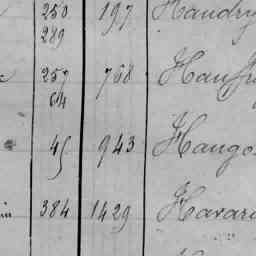 250 197 Haudry
289
257 768 Hauffr
64
45 943 Haugo
384 1429 Havar